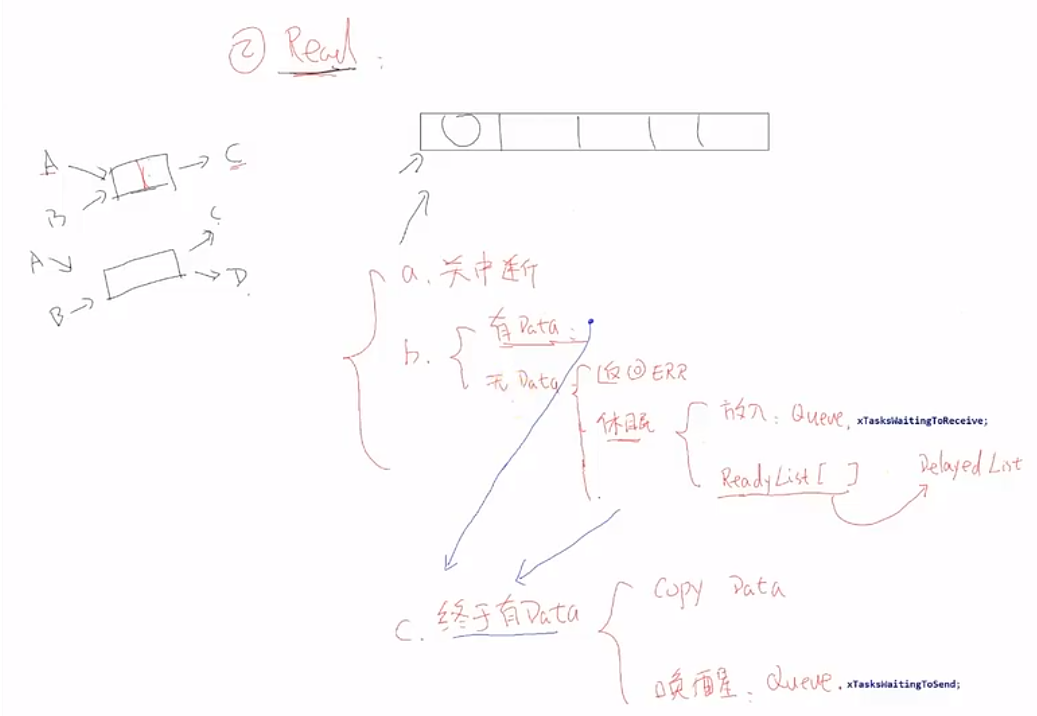 ② Read :
A
B
C
A
B
C
D
a. 关中断
b.
有Data :
无Data
返回ERR
休眠
放入: Queue. xTasksWaitingToReceive;
ReadyList [ ]
Delayed List
c. 终于有Data
Copy Data
唤醒: Queue. xTasksWaitingToSend;